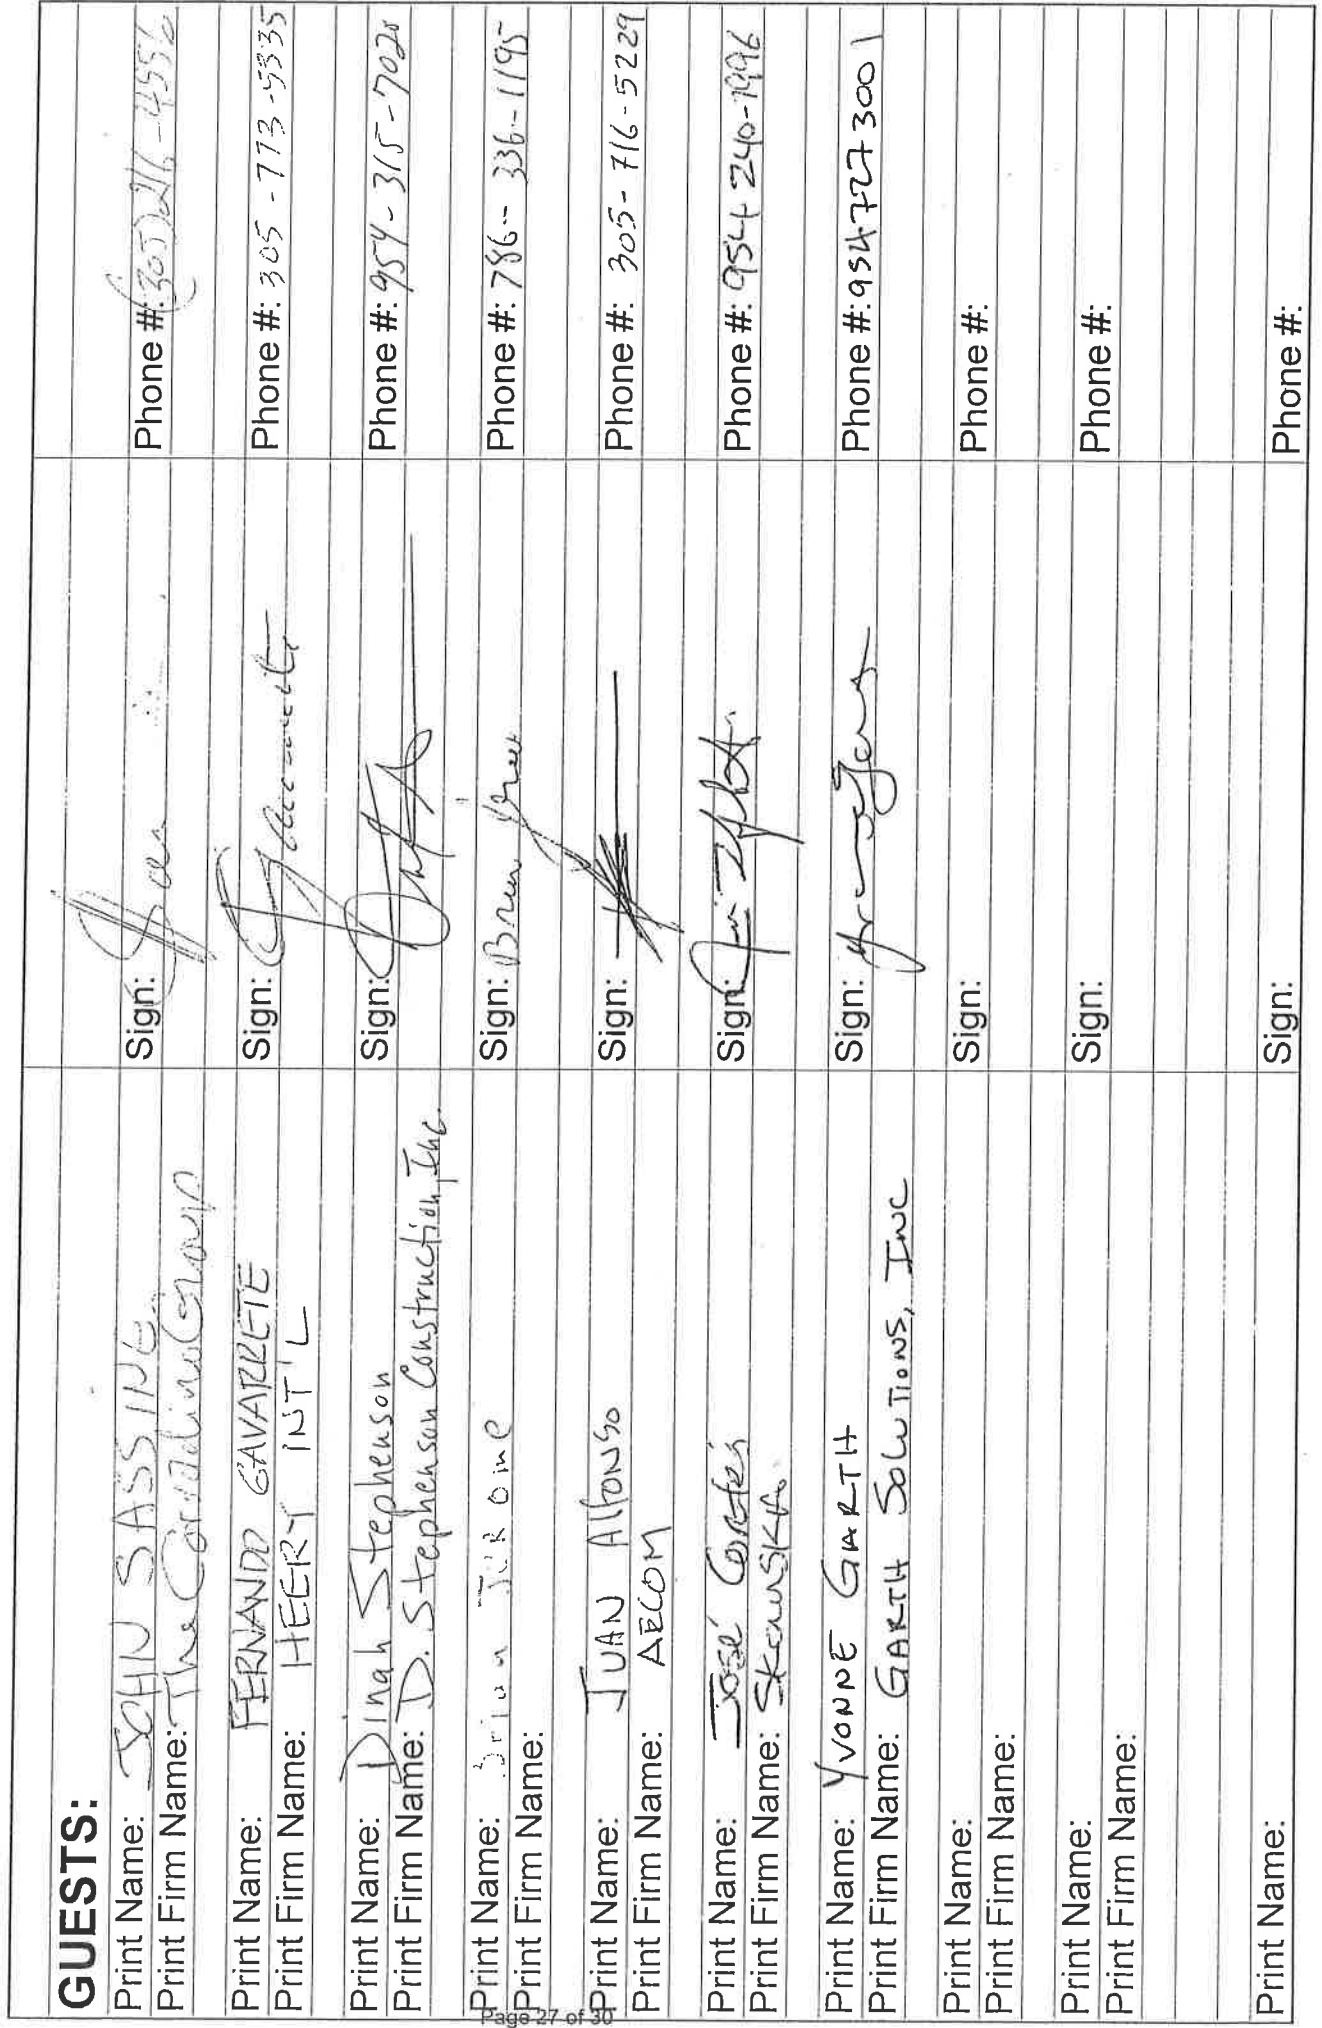 GUESTS:
Print Name: JOHN SASSINE Sign: Phone #: (305) 216-4556
Print Firm Name: The Corradino Group
Print Name: FERNANDO GAVARRETE Sign: Phone #: 305-773-5335
Print Firm Name: HEERY INT'L
Print Name: Dinah Stephenson Sign: Phone #: 954-315-7020
Print Firm Name: D. Stephenson Construction, Inc.
Print Name: Brian Sign: Brian Phone #: 786-336-1195
Print Firm Name:
Print Name: JUAN Alfonso Sign: Phone #: 305-716-5229
Print Firm Name: AECOM
Print Name: José Cortés Sign: Phone #: 954 240-1996
Print Firm Name: Skanska
Print Name: YVONNE GARTH Sign: Phone #: 954 727 3001
Print Firm Name: GARTH SOLUTIONS, INC
Print Name: Sign: Phone #:
Print Firm Name:
Print Name: Sign: Phone #:
Print Firm Name:
Print Name: Sign: Phone #:
Page 27 of 30